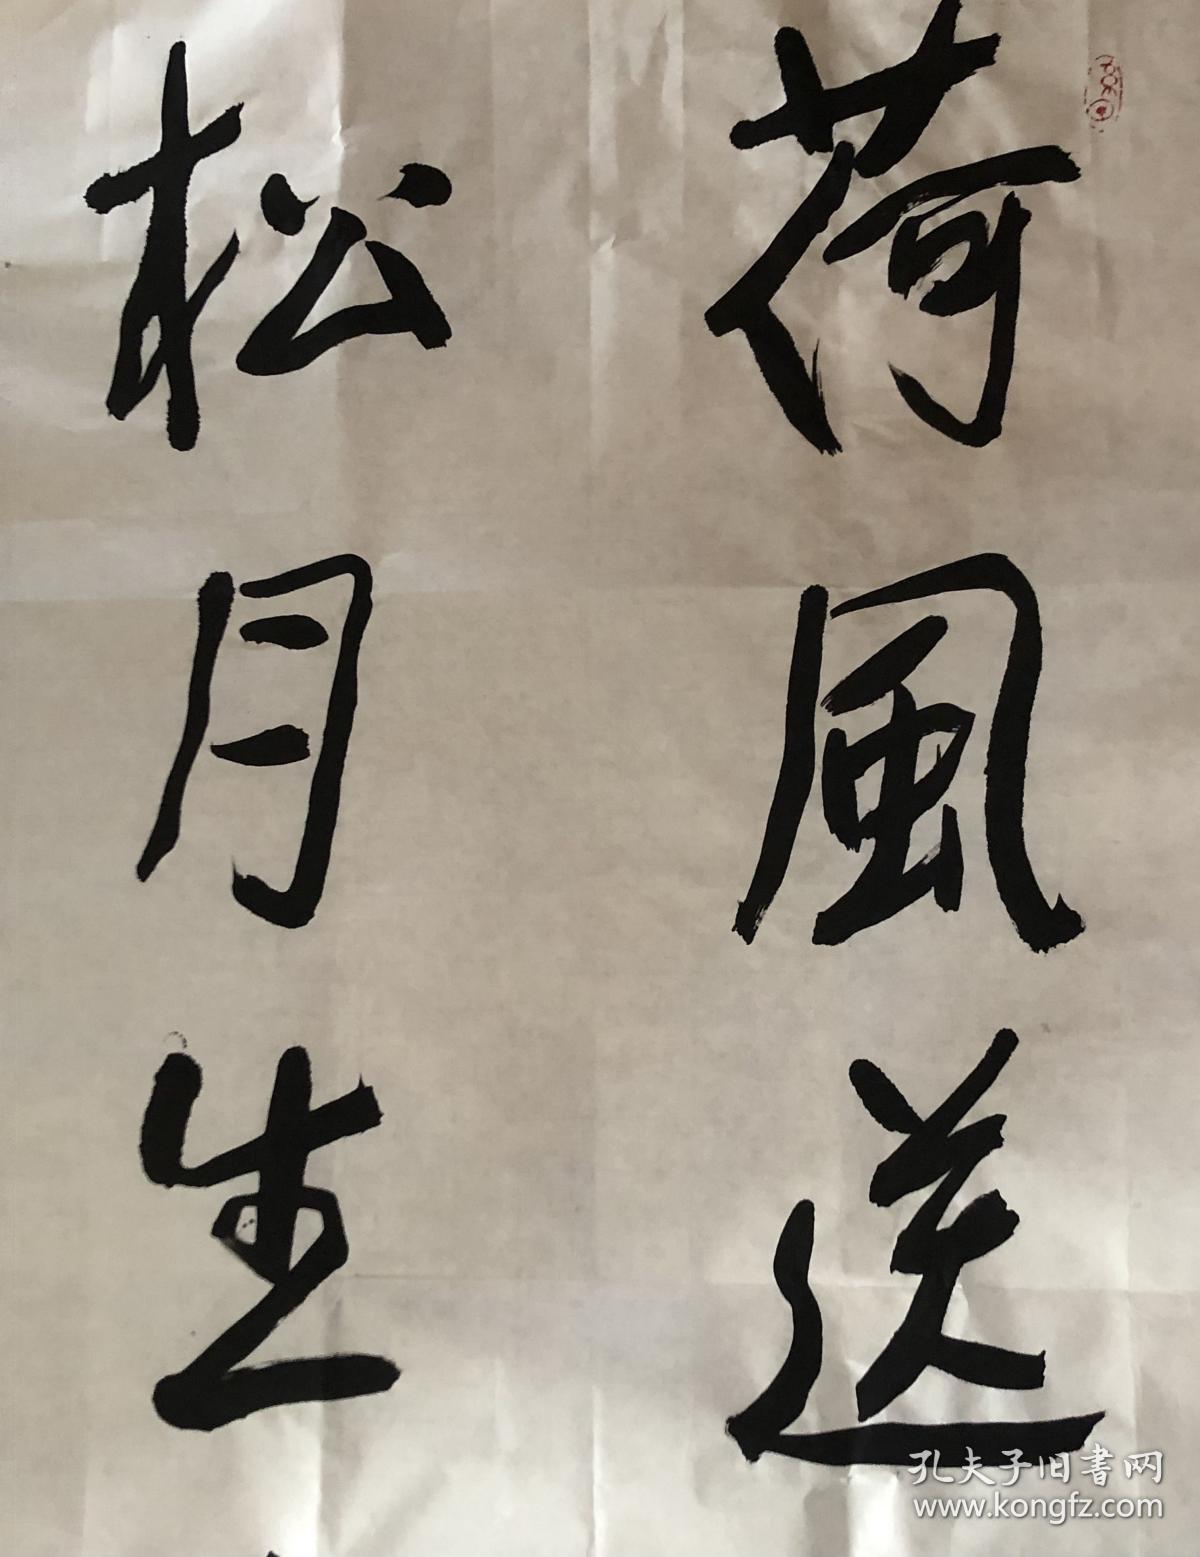 荷風送
松月生
孔夫子旧書网
www.kongfz.com